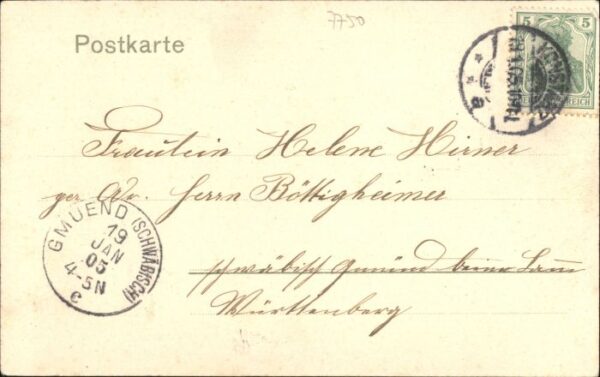 7750
Postkarte
5 5
REICH
Fräulein Helene Hirner
per Adr. Herrn Böttigheimer
schwäbisch Gmünd beim Lam
Württenberg
GMUEND (SCHWÄBISCH)
19
JAN
05
4-5N
c